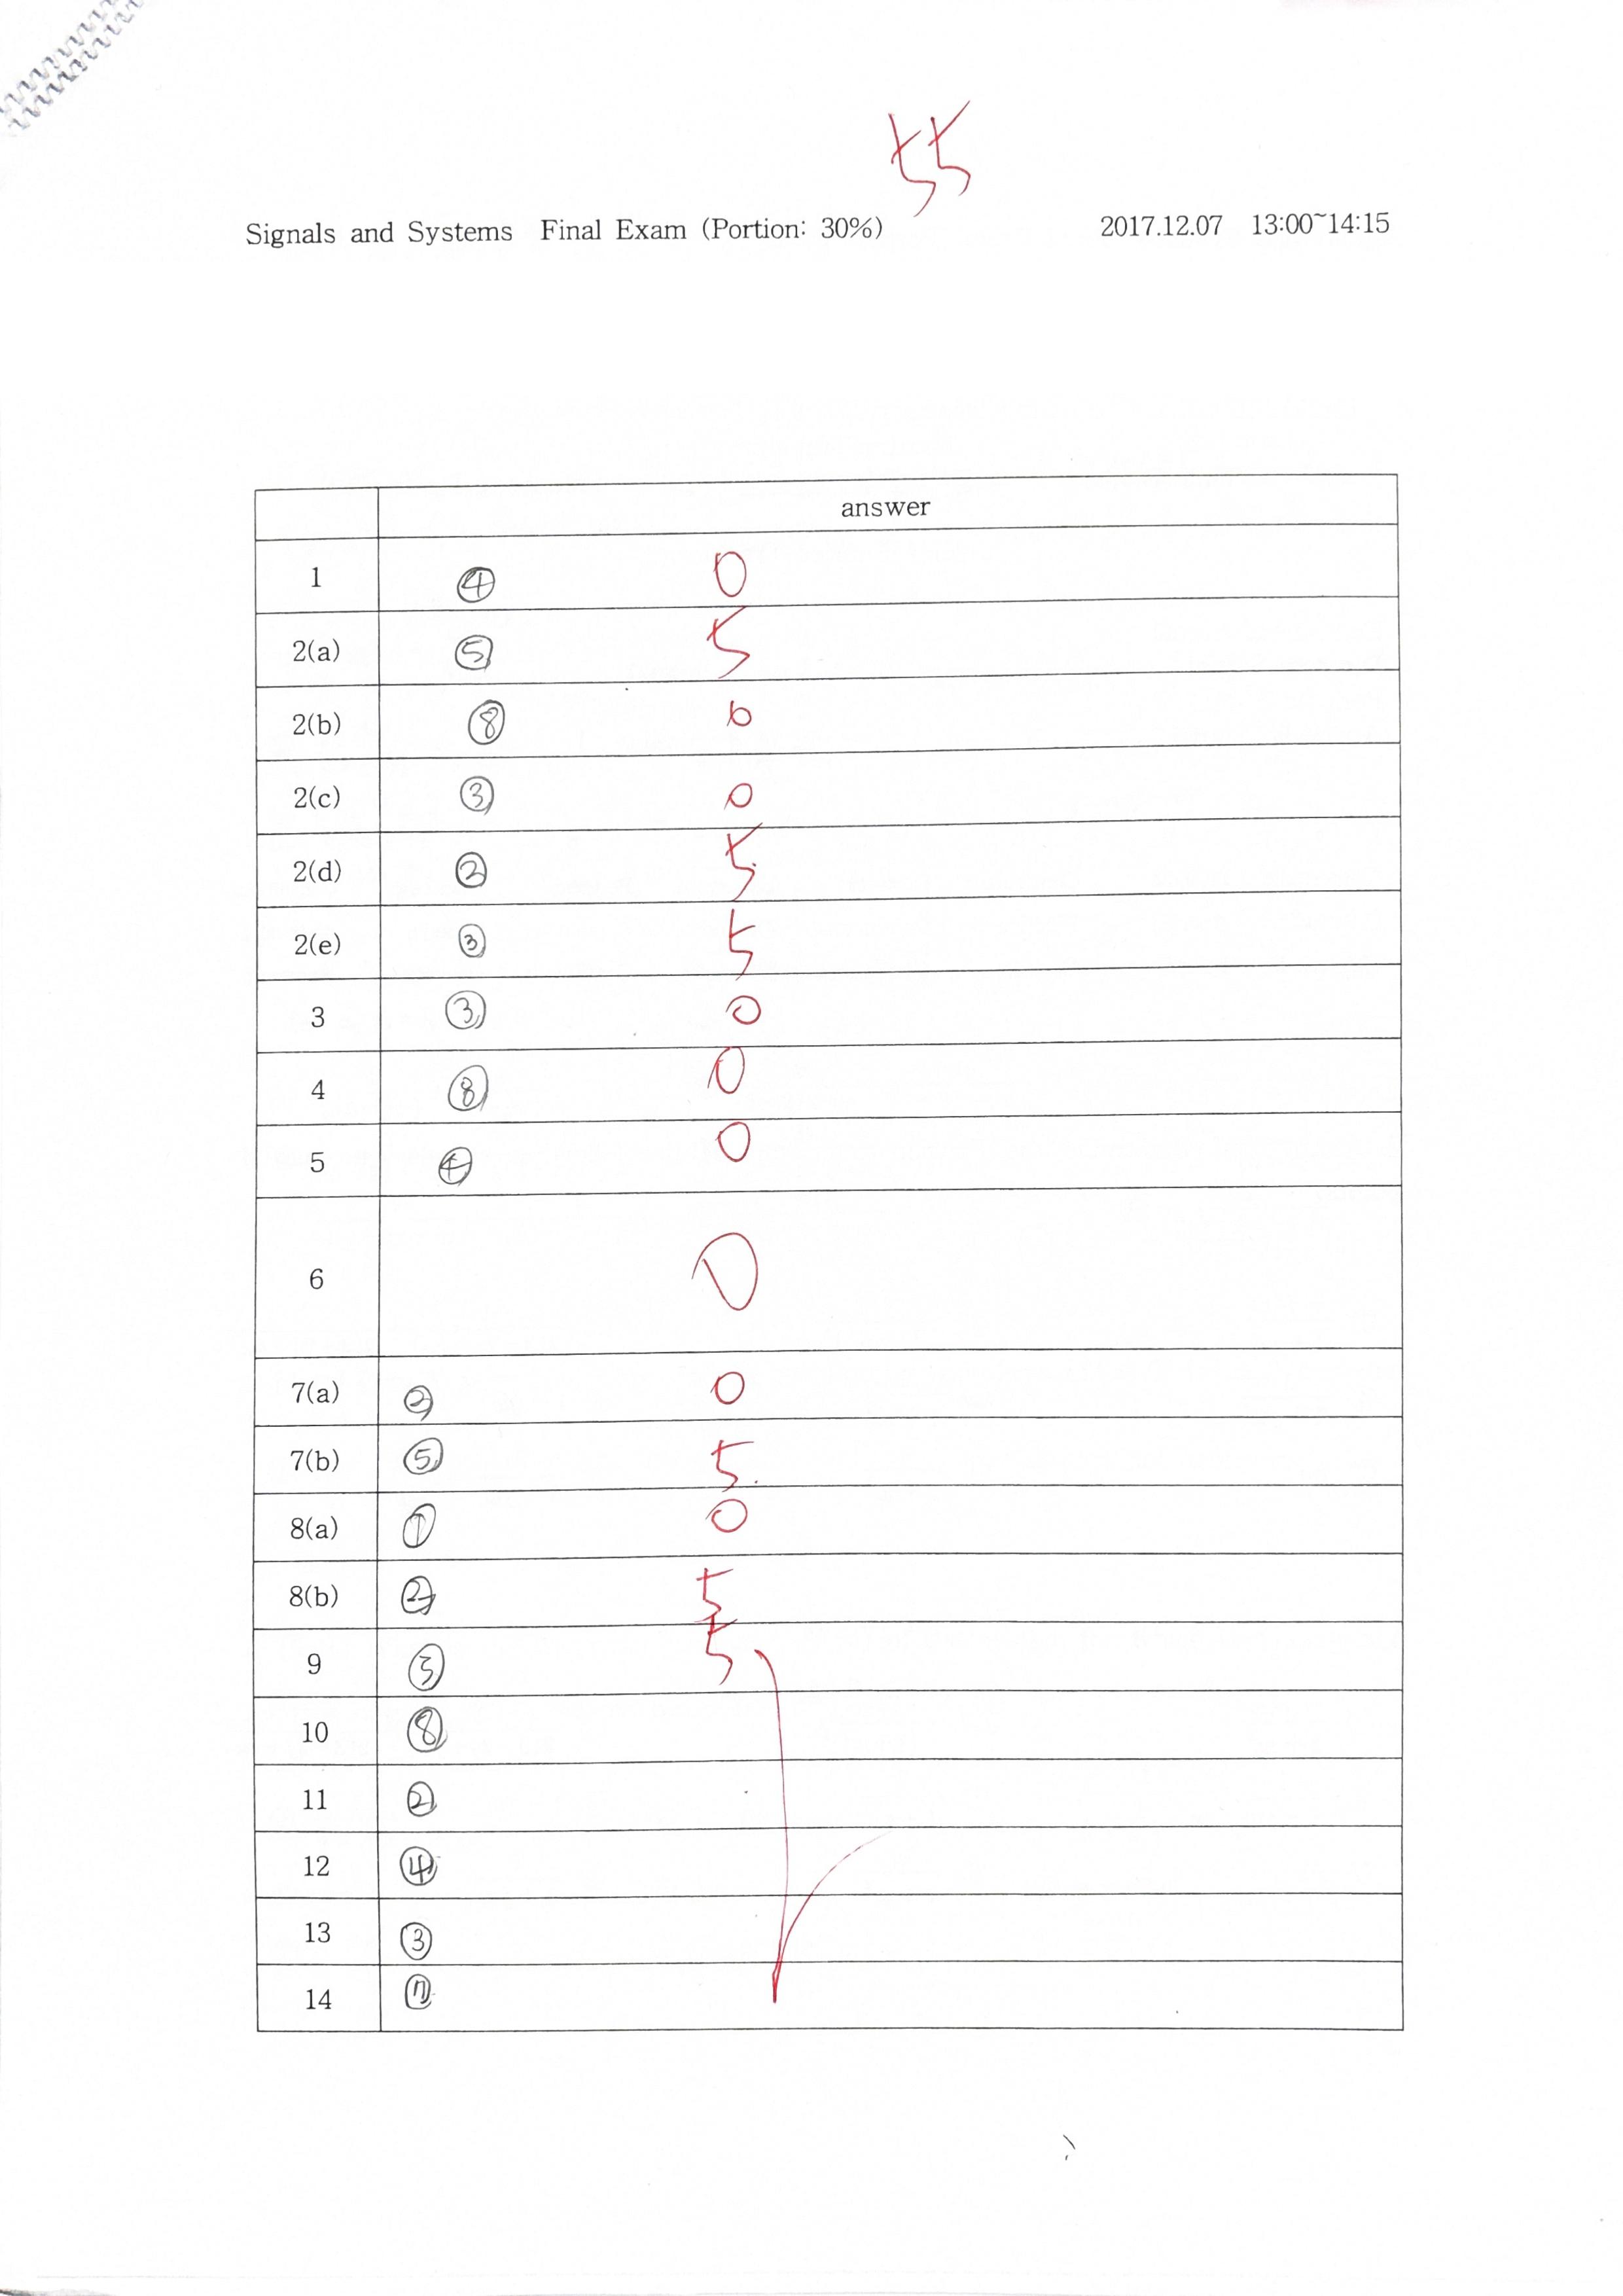 55
Signals and Systems Final Exam (Portion: 30%) 2017.12.07 13:00~14:15
answer
1 ④ 0
2(a) ⑤ 5
2(b) ⑧ 0
2(c) ③ 0
2(d) ② 5
2(e) ③ 5
3 ③ 0
4 ⑧ 0
5 ④ 0
6 0
7(a) ② 0
7(b) ⑤ 5
8(a) ① 0
8(b) ② 5
9 5
10 ⑧
11 ②
12 ④
13 ③
14